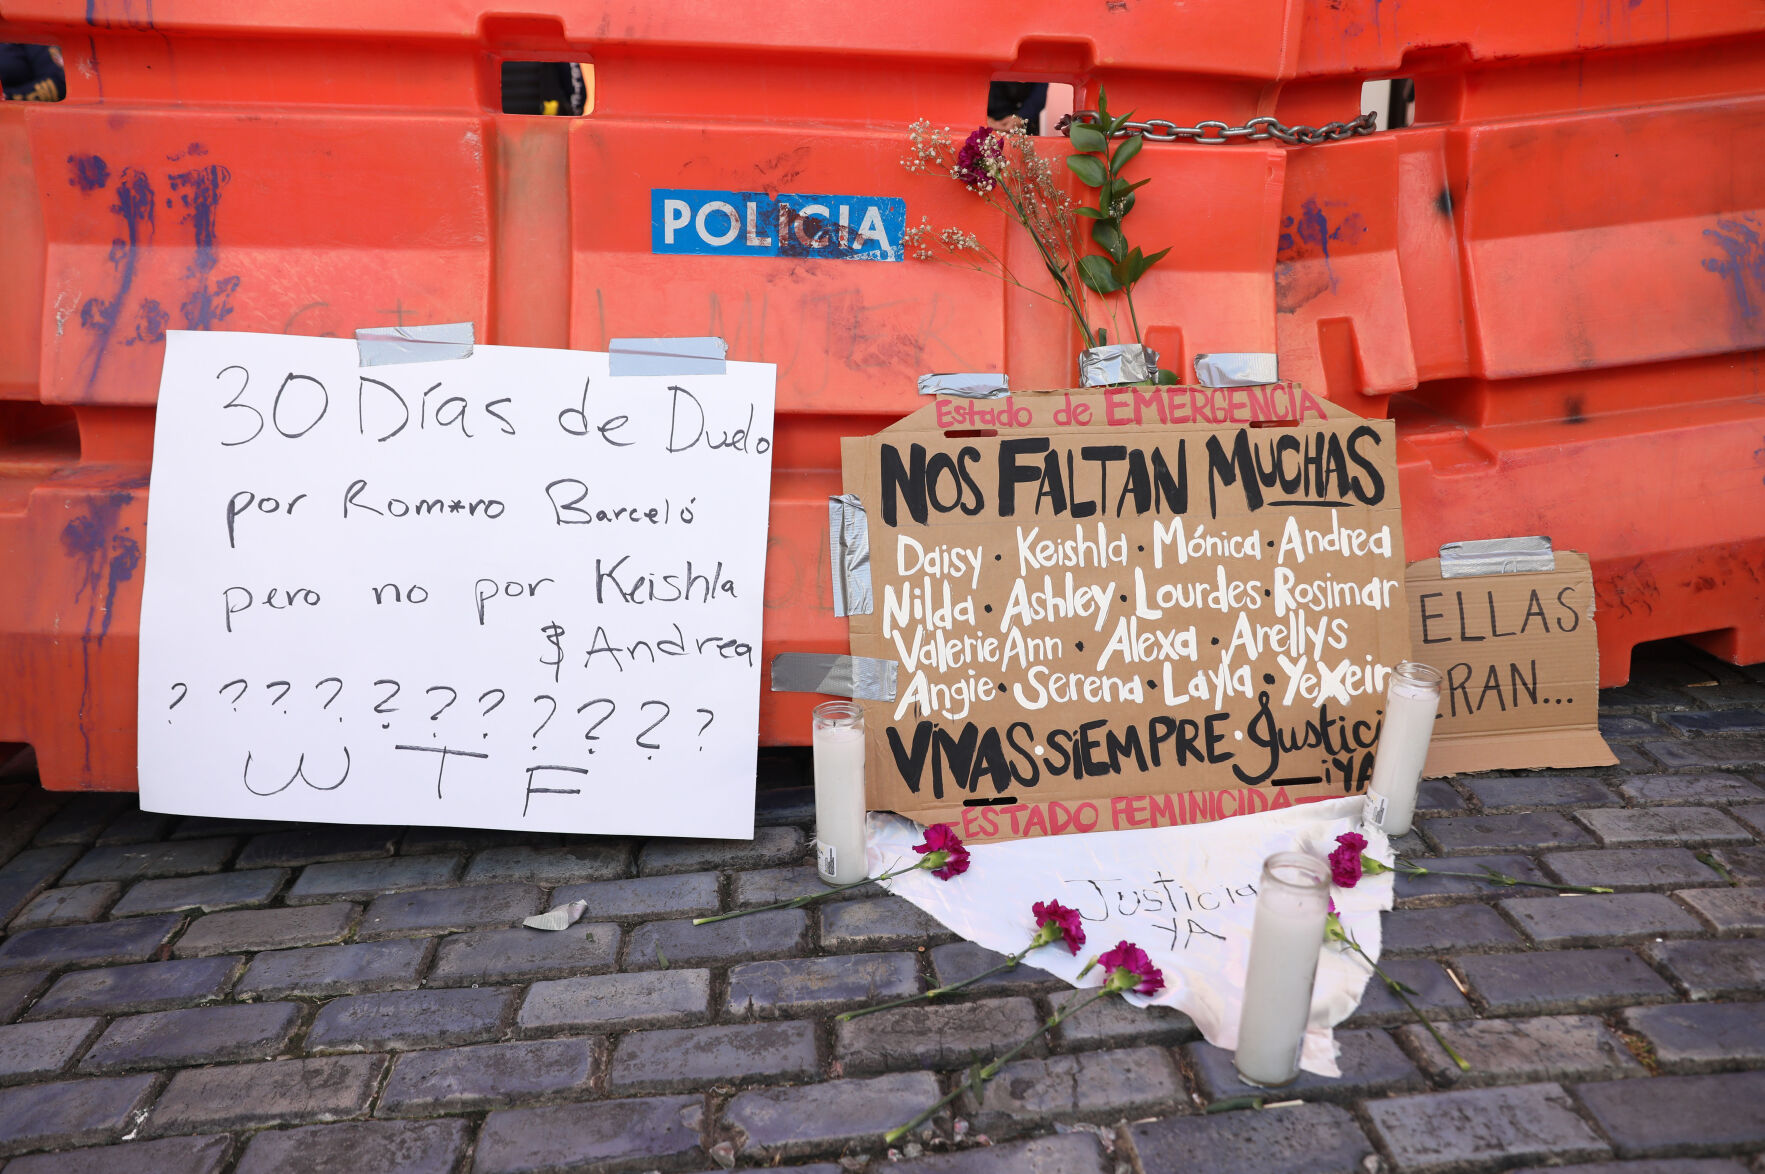 POLICIA
30 Días de Duelo
por Rom*ro Barceló
pero no por Keishla
& Andrea
? ? ? ? ? ? ? ? ? ? ?
W T F
Estado de EMERGENCIA
NOS FALTAN MUCHAS
Daisy · Keishla · Mónica · Andrea
Nilda · Ashley · Lourdes · Rosimar
Valerie Ann · Alexa · Arellys
Angie · Serena · Layla · Yexeir
VIVAS · SIEMPRE · Justici
¡YA
ESTADO FEMINICIDA
ELLAS
RAN...
Justicia
YA